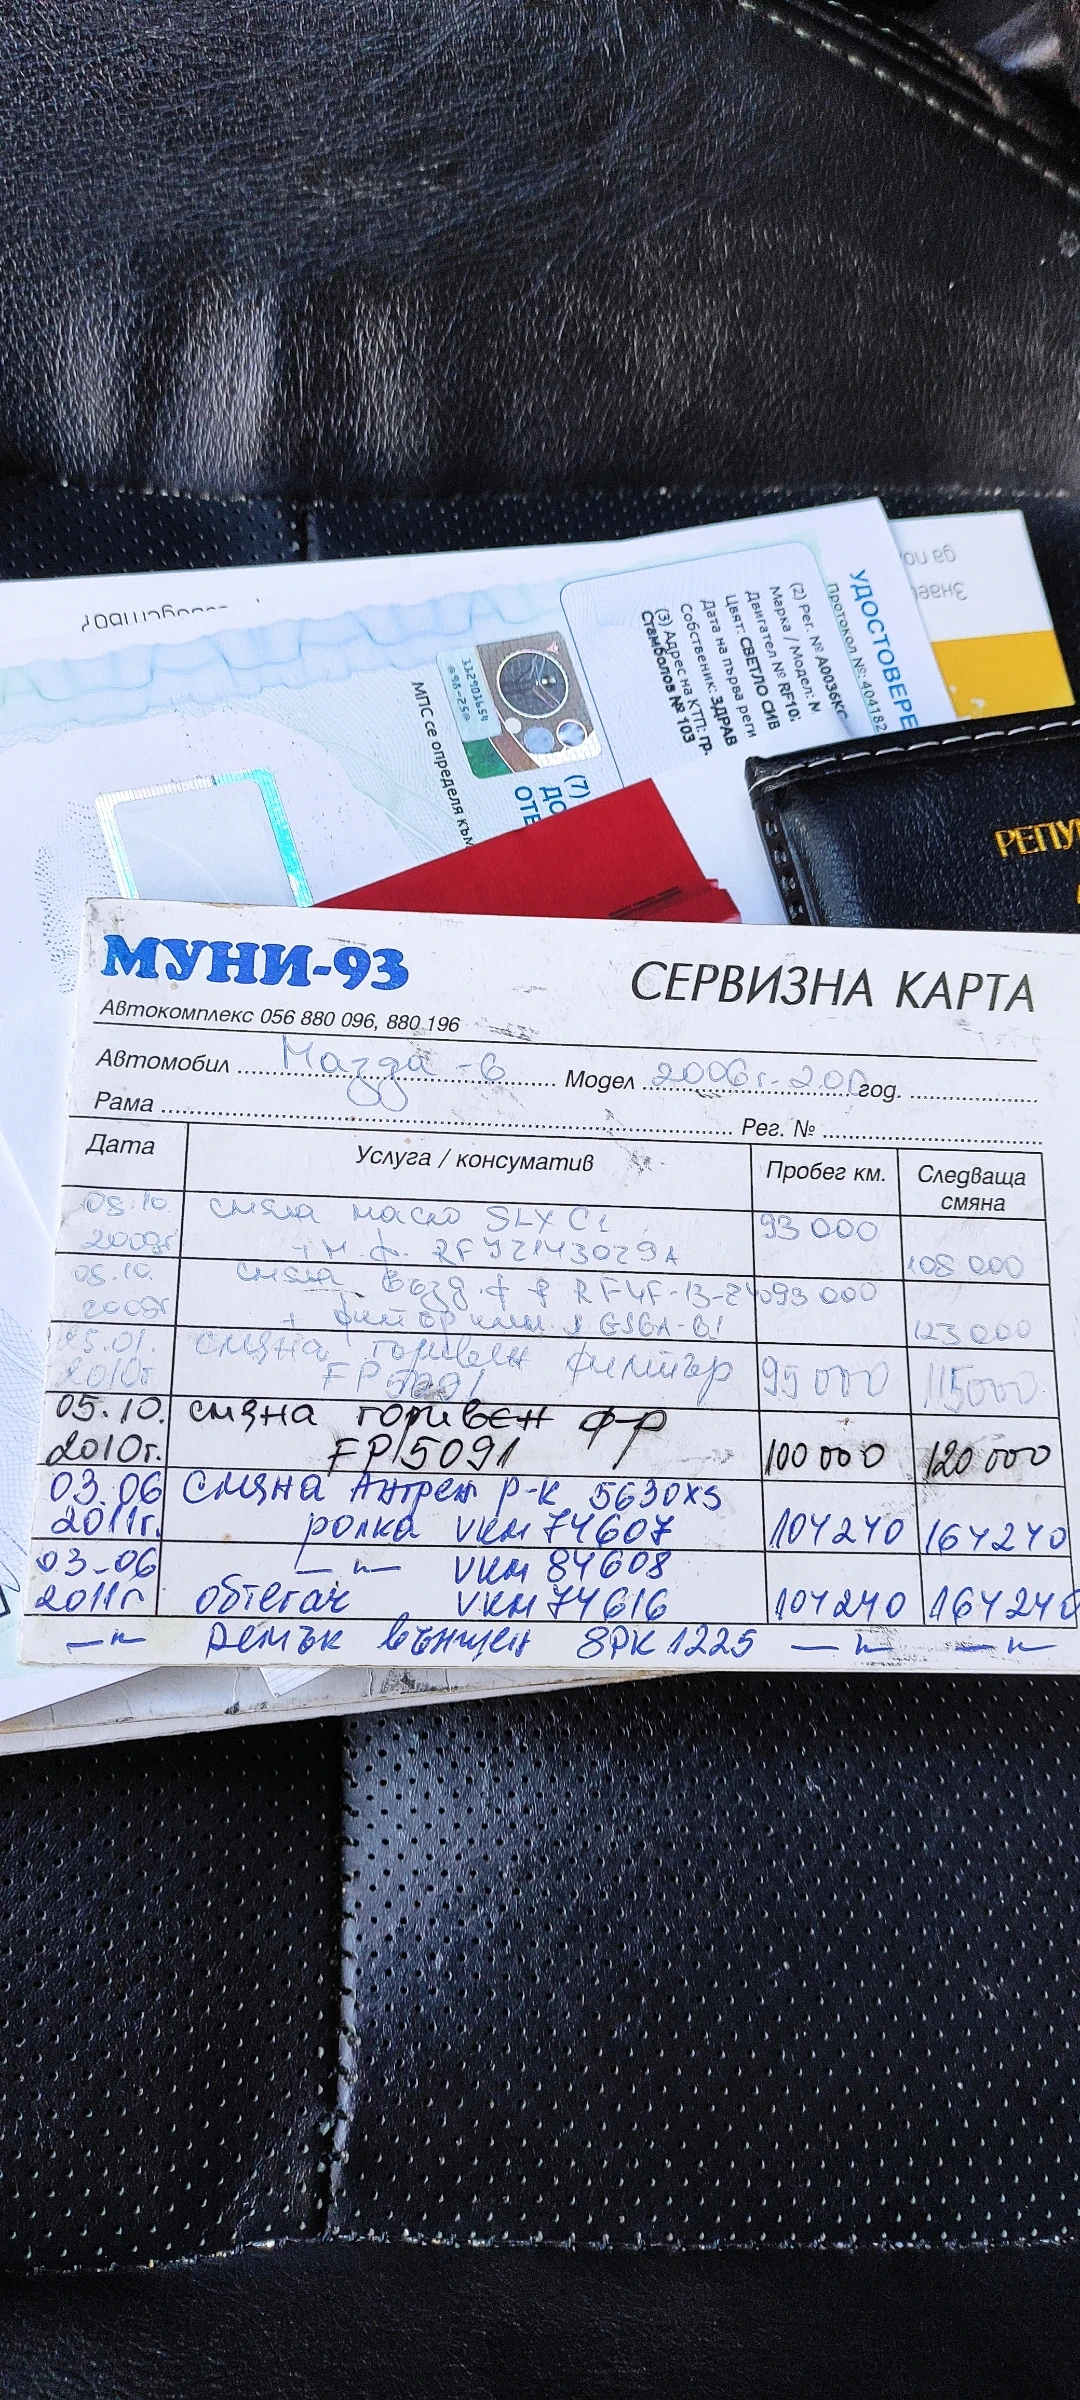 да по
Знае
УДОСТОВЕРЕ
Протокол №: 404182
(2) Рег. № А0036КС
Марка / Модел: М
Двигател № RF10:
Цвят: СВЕТЛО СИВ
Дата на първа реги
Собственик: ЗДРАВ
(3) Адрес на КТП: гр.
Стамболов № 103
МПС се определя към
(7)
ДО
ОТЕ
РЕПУ
МУНИ-93
СЕРВИЗНА КАРТА
Автокомплекс 056 880 096, 880 196
Автомобил Мазда - 6 Модел 2006г. - 2.0D год.
Рама Рег. №
Дата Услуга / консуматив Пробег км. Следваща смяна
08.10. смяна масло SLX C1 93 000
2009г + м. ф. RF4Z143029A 108 000
08.10. смяна възд. ф-р RF4F-13-Z40 93 000
2009г + филтър GSGA-61 123 000
25.01. смяна горивен филтър
2010г. FP5091 95 000 115 000
05.10. смяна горивен ф-р
2010г. FP5091 100 000 120 000
03.06 смяна Ангрен р-к 5630XS
2011г. ролка VKM 74607 104240 164240
03-06 —"— VKM 84608
2011г обтегач VKM 74616 104240 164240
—"— ремък външен 8PK1225 —"— —"—